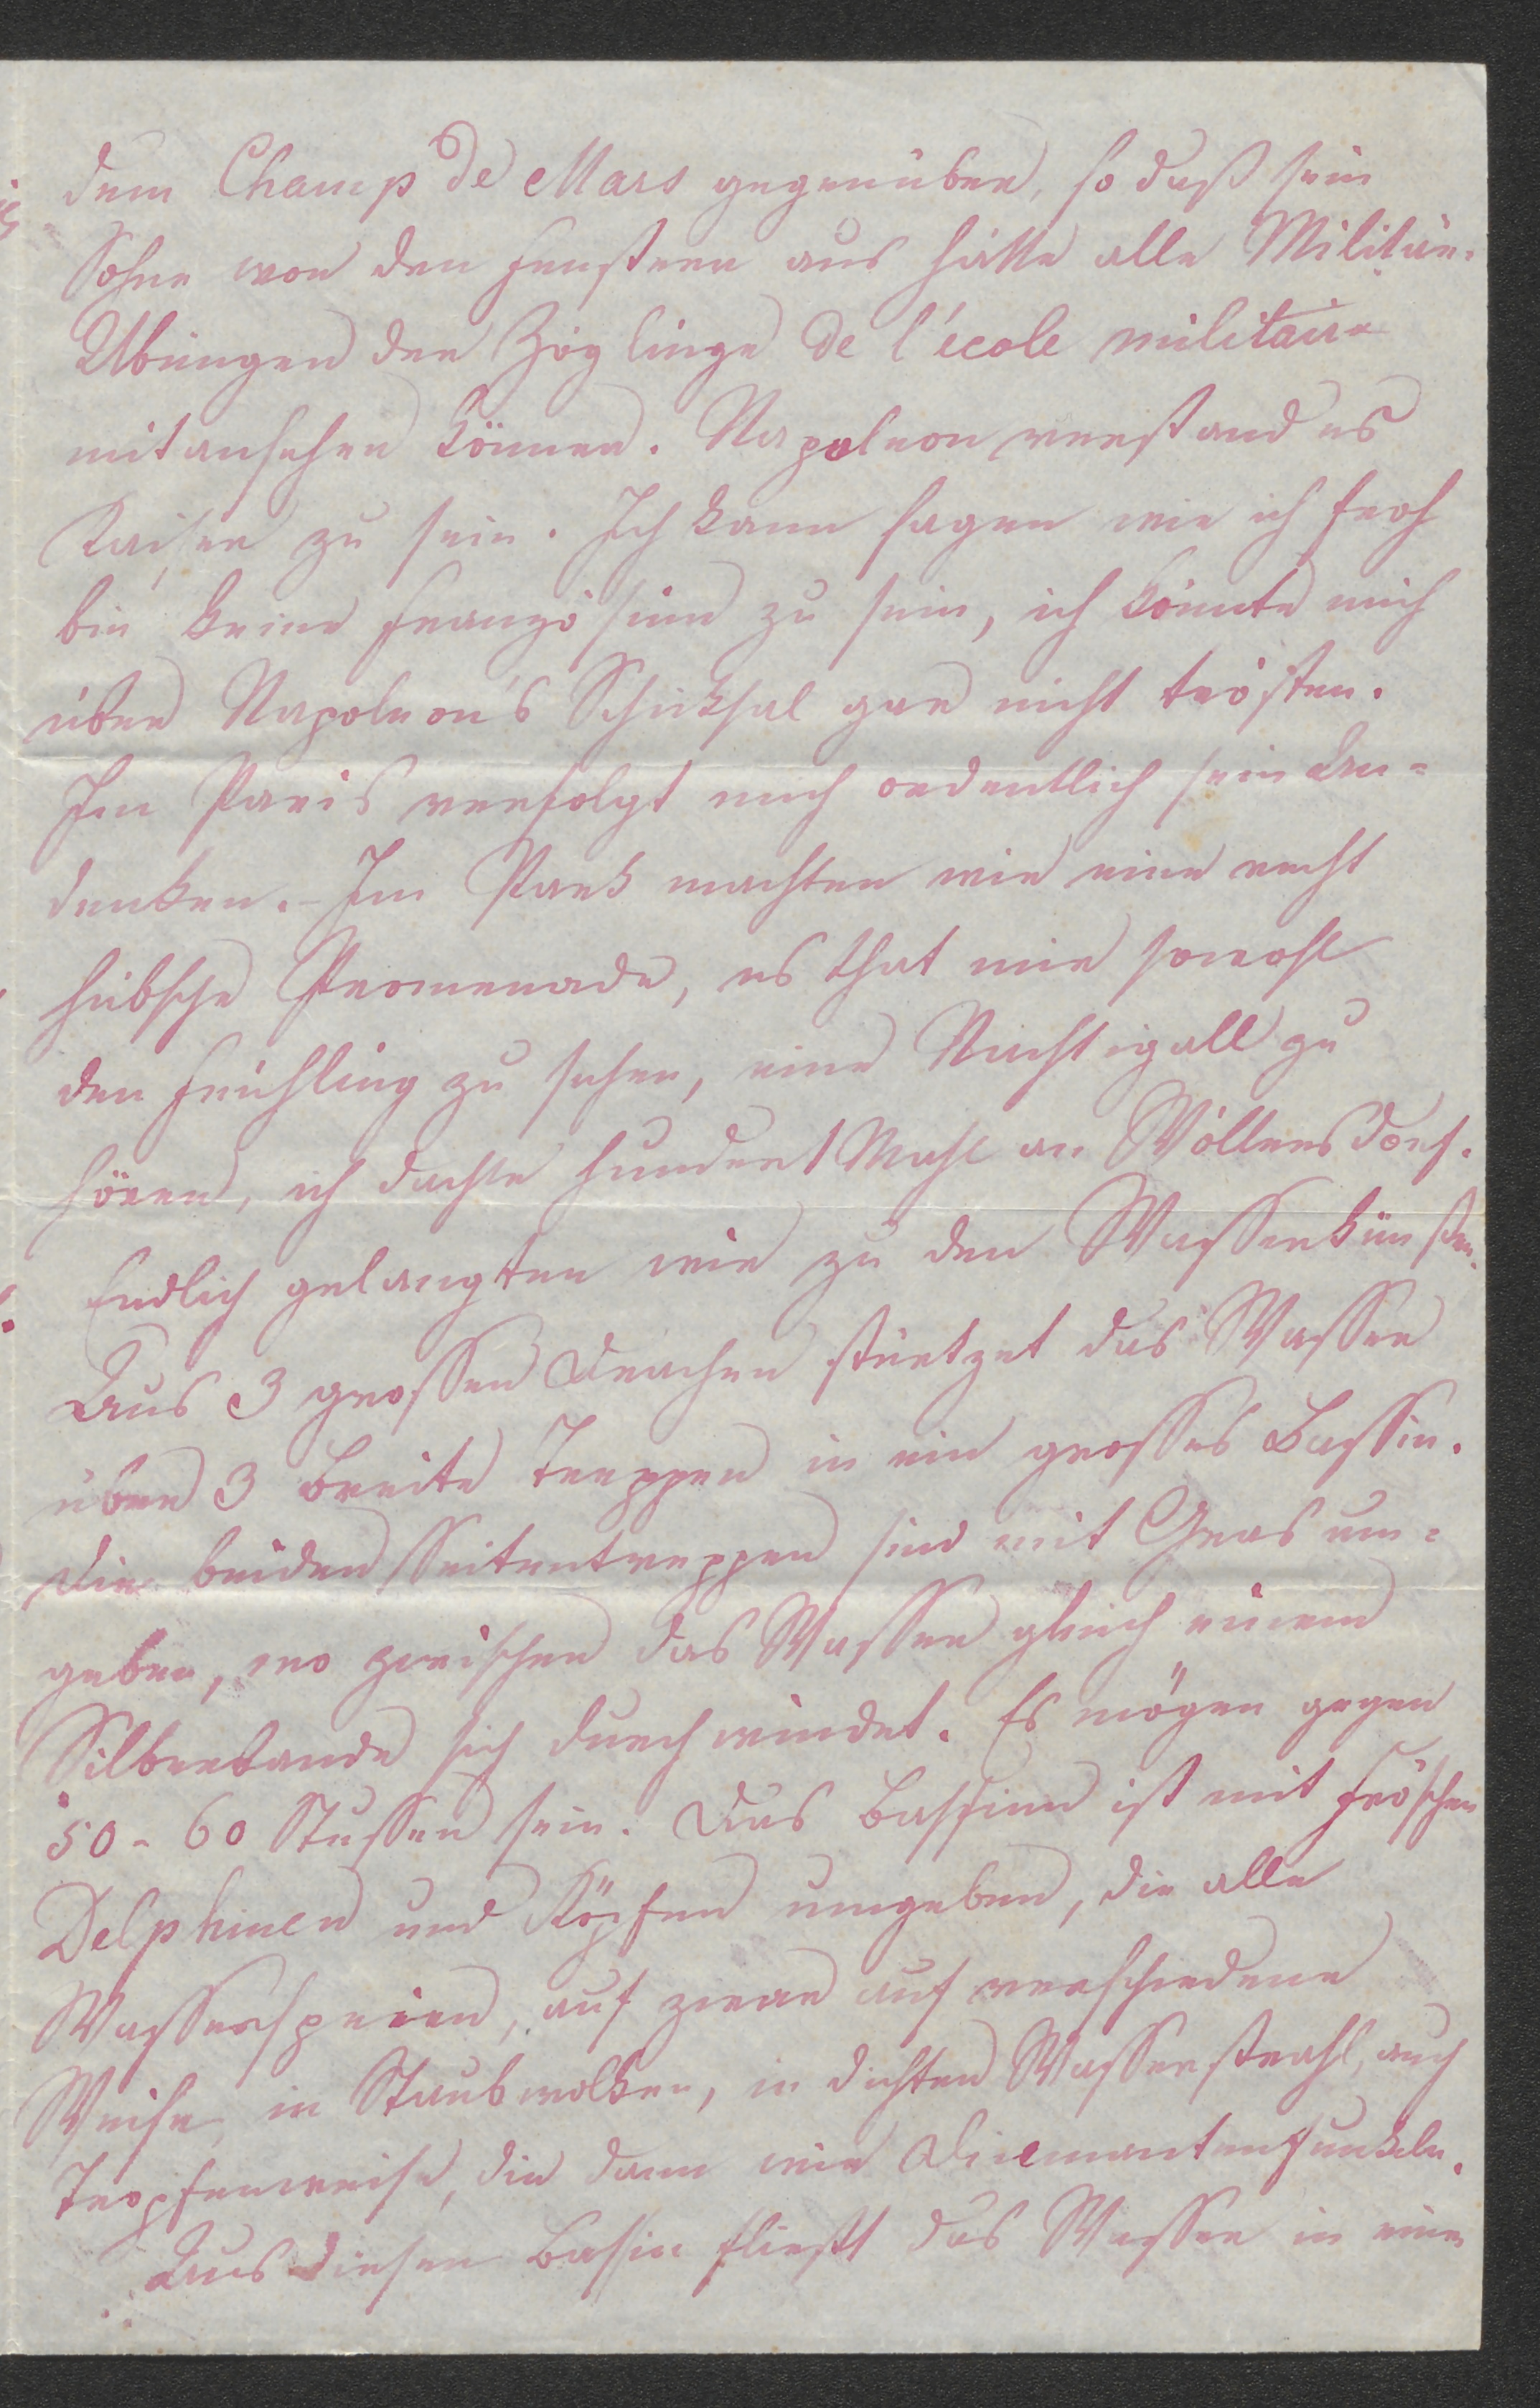 dem Champ de Mars gegenüber, so daß sein
Sohne von den Fenstern aus hätte alle Militär-
Übungen der Zöglinge de l'école militaire
mitansehen können. Napoleon verstand es
Kaiser zu sein. Ich kann sagen wie ich froh
bin keine Französinn zu sein, ich könnte mich
über Napoleon's Schicksal gar nicht trösten.
In Paris verfolgt mich ordentlich sein An-
denken. - Im Park machten wir eine recht
hübsche Promenade, es that mir so wohl
den Frühling zu sehen, eine Nachtigall zu
hören, ich dachte hundert Mahl an Wöllersdorf.
Endlich gelangten wir zu den Wasserkünsten.
Aus 3 grossen Drachen stürtzet das Wasser
über 3 breite Treppen in ein grosses Bassin.
Die beiden Seitentreppen sind mit Gras um-
geben, wo zwischen das Wasser gleich einem
Silberbande sich durchwindet. Es mögen gegen
50 - 60 Stuffen sein. Das Bassinn ist mit Fröschen
Delphinen und Köpfen umgeben, die alle
Wasserspeien, auf zwar auf verschiedene
Weise, in Staubwolken, in dichten Wasserstrahl, auch
Tropfenweise, die dann wie Diemanten funkeln.
Aus diesen Basin fliesst das Wasser in einen